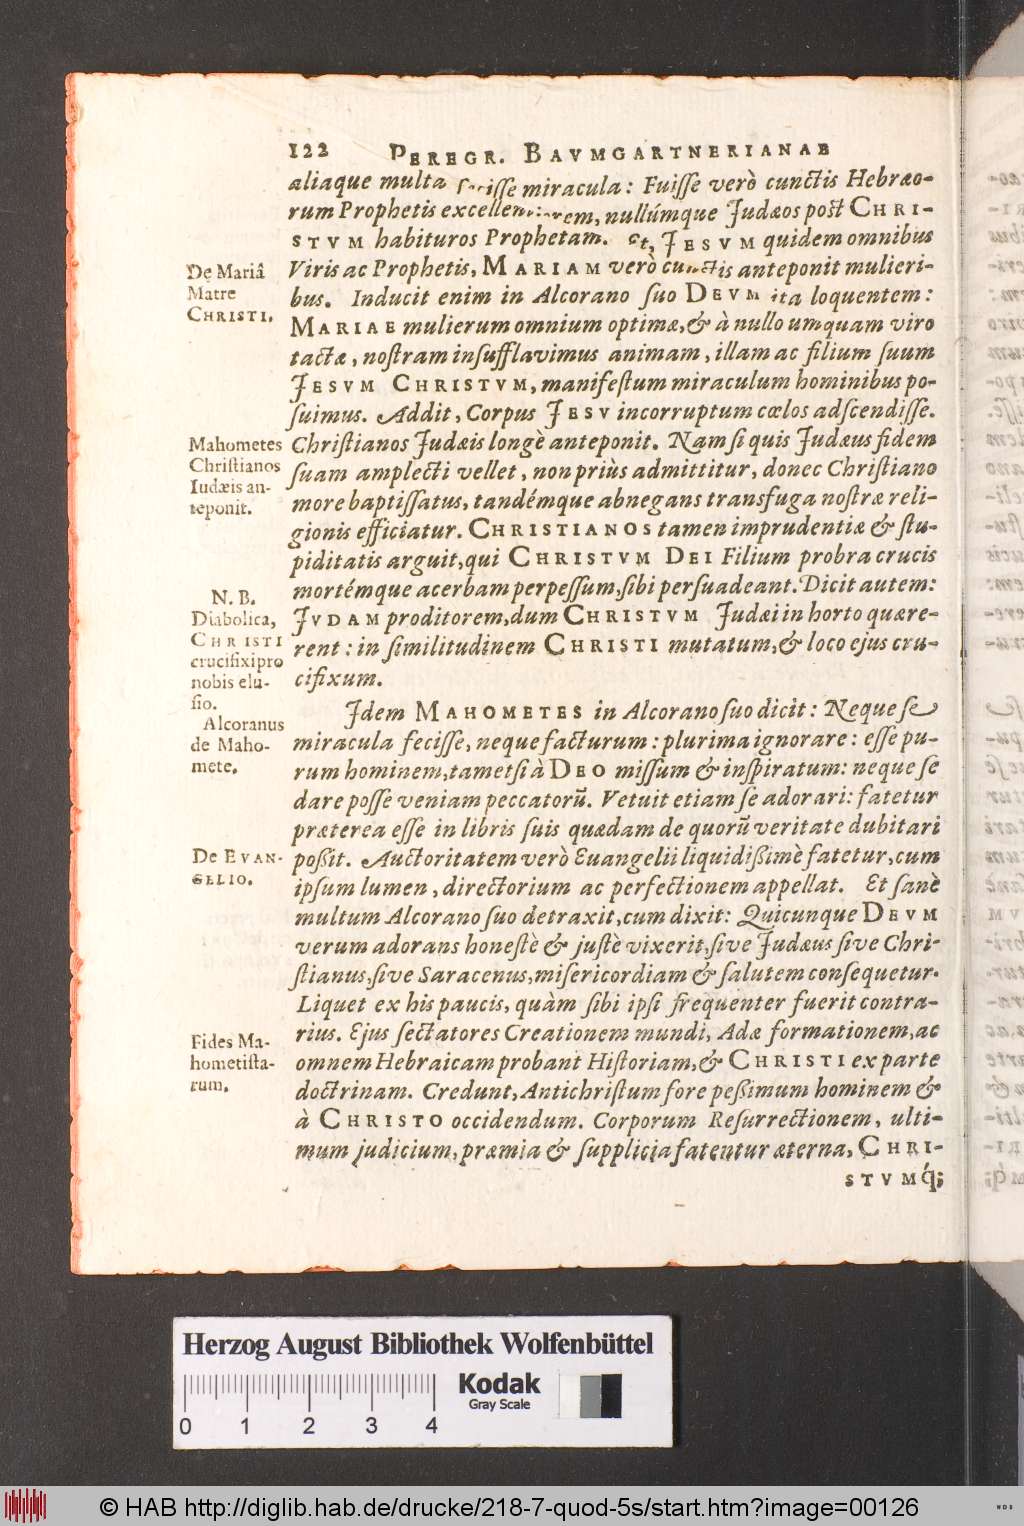 122 PEREGR. BAVMGARTNERIANAE
aliaque multa fecisse miracula: Fuisse verò cunctis Hebræo-
rum Prophetis excellentiorem, nullúmque Judæos post CHRI-
STVM habituros Prophetam. Et, JESVM quidem omnibus
Viris ac Prophetis, MARIAM verò cunctis anteponit mulieri-
bus. Inducit enim in Alcorano suo DEVM ita loquentem:
MARIAE mulierum omnium optimæ, & à nullo umquam viro
tactæ, nostram insufflavimus animam, illam ac filium suum
JESVM CHRISTVM, manifestum miraculum hominibus po-
suimus. Addit, Corpus JESV incorruptum cœlos adscendisse.
Christianos Judæis longè anteponit. Nam si quis Judæus fidem
suam amplecti vellet, non priùs admittitur, donec Christiano
more baptissatus, tandémque abnegans transfuga nostræ reli-
gionis efficiatur. CHRISTIANOS tamen imprudentiæ & stu-
piditatis arguit, qui CHRISTVM DEI Filium probra crucis
mortémque acerbam perpessum, sibi persuadeant. Dicit autem:
JVDAM proditorem, dum CHRISTVM Judæi in horto quære-
rent: in similitudinem CHRISTI mutatum, & loco ejus cru-
cifixum.
Jdem MAHOMETES in Alcorano suo dicit: Neque se
miracula fecisse, neque facturum: plurima ignorare: esse pu-
rum hominem, tametsi à DEO missum & inspiratum: neque se
dare posse veniam peccatorū. Vetuit etiam se adorari: fatetur
præterea esse in libris suis quædam de quorū veritate dubitari
poßit. Auctoritatem verò Euangelii liquidißimè fatetur, cum
ipsum lumen, directorium ac perfectionem appellat. Et sanè
multum Alcorano suo detraxit, cum dixit: Quicunque DEVM
verum adorans honestè & justè vixerit, sive Judæus sive Chri-
stianus, sive Saracenus, misericordiam & salutem consequetur.
Liquet ex his paucis, quàm sibi ipsi frequenter fuerit contra-
rius. Ejus sectatores Creationem mundi, Adæ formationem, ac
omnem Hebraicam probant Historiam, & CHRISTI ex parte
doctrinam. Credunt, Antichristum fore peßimum hominem &
à CHRISTO occidendum. Corporum Resurrectionem, ulti-
mum judicium, præmia & supplicia fatentur æterna, CHRI-
STVMq́;
De Mariâ
Matre
CHRISTI.
Mahometes
Christianos
Iudæis an-
teponit.
N. B.
Diabolica,
CHRISTI
crucifixi pro
nobis elu-
sio.
Alcoranus
de Maho-
mete.
De EVAN-
GELIO.
Fides Ma-
hometista-
rum.
Herzog August Bibliothek Wolfenbüttel
0 1 2 3 4
Kodak
Gray Scale
© HAB http://diglib.hab.de/drucke/218-7-quod-5s/start.htm?image=00126